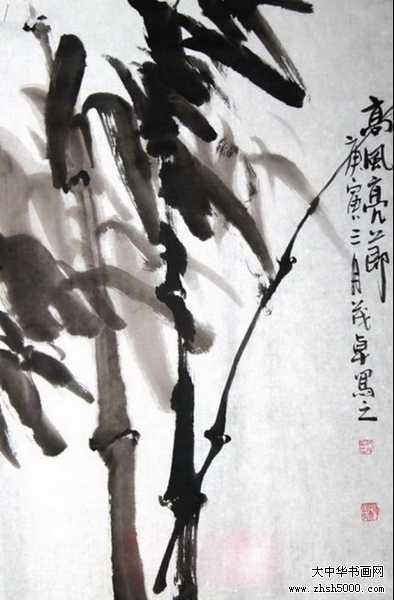 高风亮节
庚寅三月茂卓写之
大中华书画网
www.zhsh5000.com